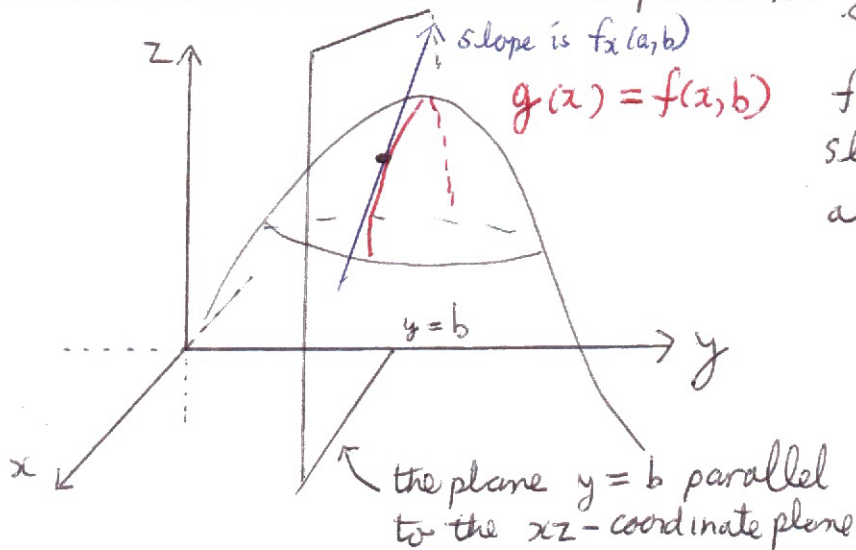 z
slope is fx(a,b)
g(x) = f(x,b)
f
a
y = b
y
x
the plane y = b parallel
to the xz-coordinate plane